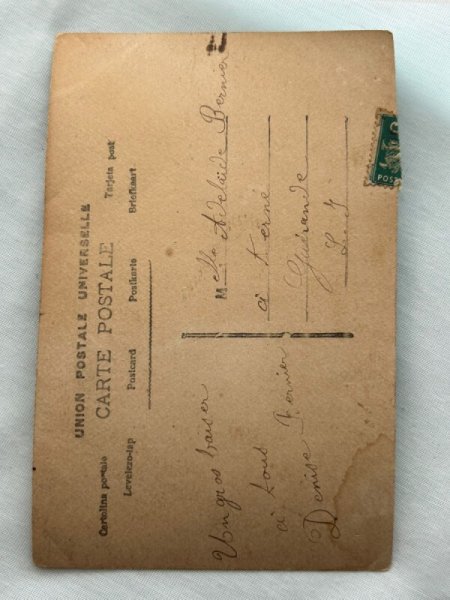 UNION POSTALE UNIVERSELLE
CARTE POSTALE
Cartolina postale Postcard Postkarte Tarjeta post
Levelezo-lap Briefkaart
Un gros baiser
à tous
Denise Vernier
Melle Adelaïde Bernier
à Kerné
Guérande
POS